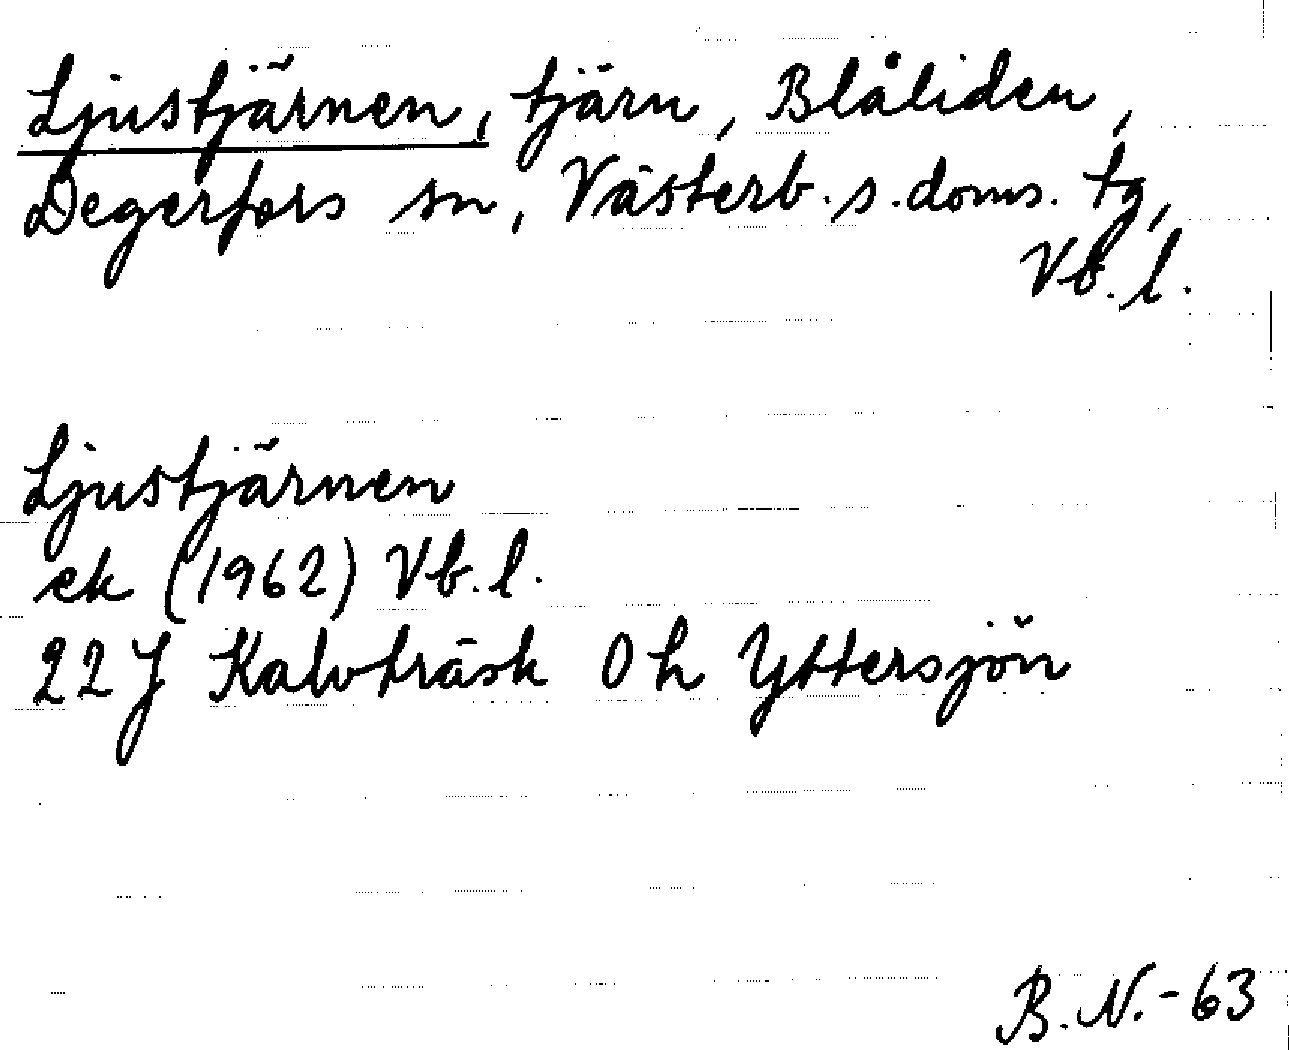 Ljustjärnen, tjärn, Blåliden,
Degerfors sn, Västerb. s. doms. tg,
Vb. l.
Ljustjärnen
ek (1962) Vb. l.
22 J Kalvträsk 0 h Yttersjön
B. N. - 63